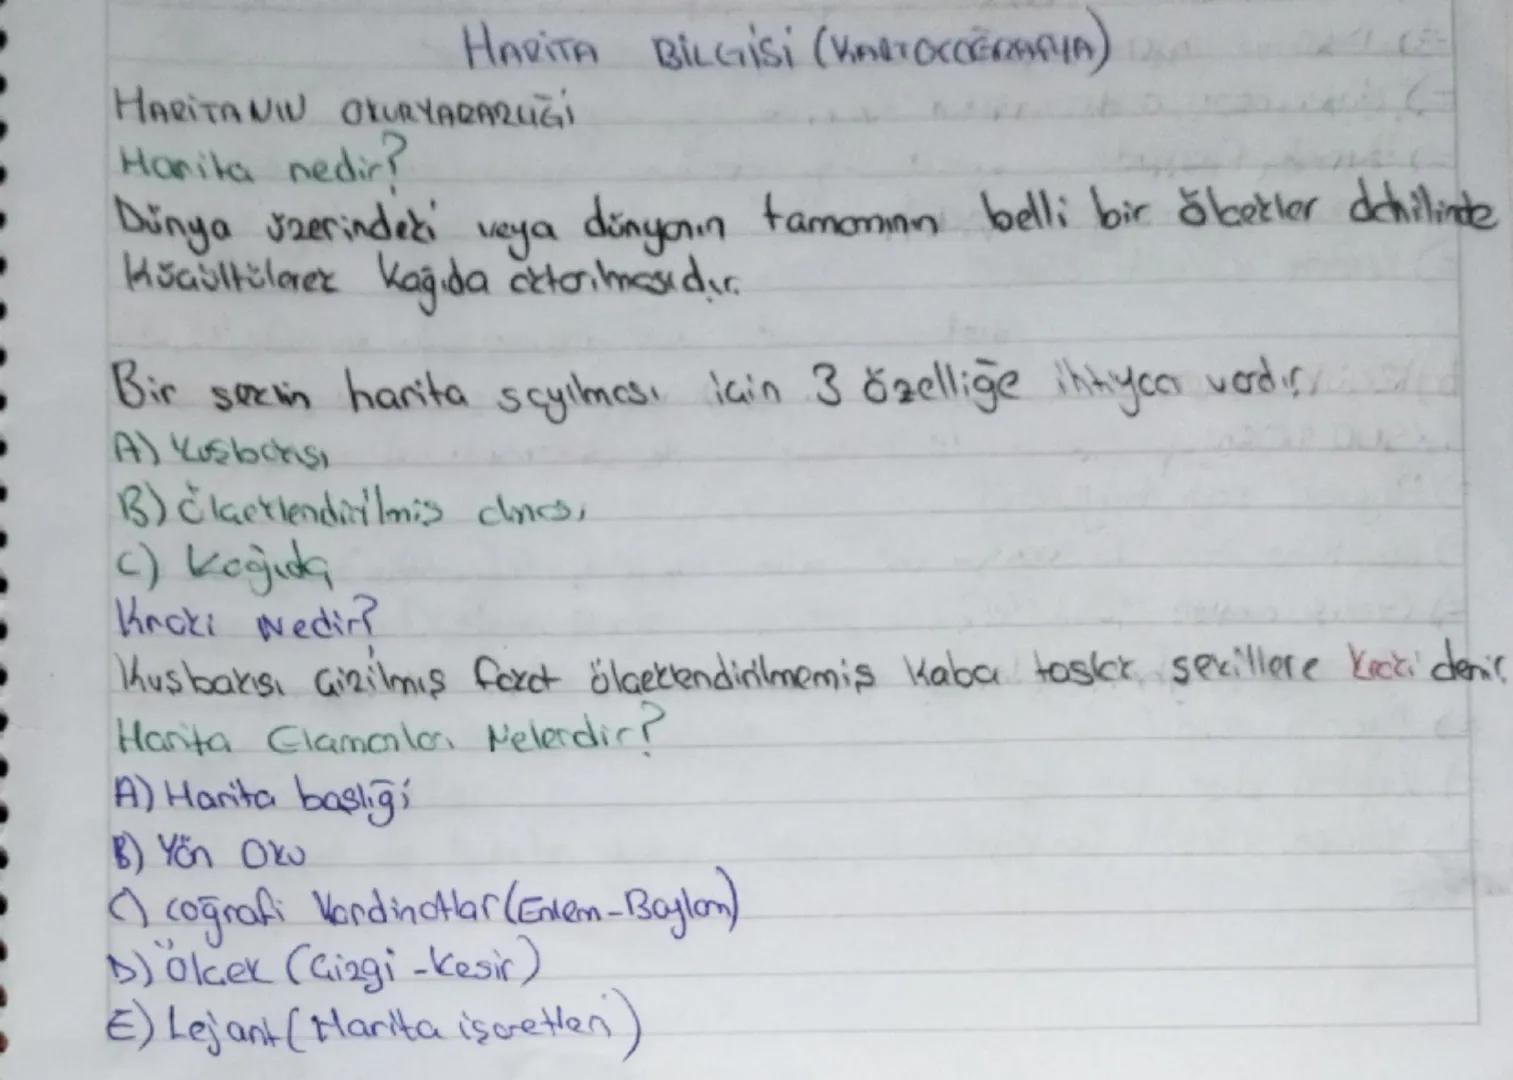 HARİTA BİLGİSİ (KARTOĞRAFYA)
HARİTANIN OKURYAZARLIĞI
Harita nedir?
Dünya üzerindeki veya dünyanın tamamının belli bir ölçekler dahilinde
Küçültülerek kağıda aktarılmasıdır.
Bir şeklin harita sayılması için 3 özelliğe ihtiyaç vardır.
A) Kuşbakışı
B) Ölçeklendirilmiş olması
C) Kağıda
Kroki Nedir?
Kuşbakışı Çizilmiş fakat ölçeklendirilmemiş Kaba taslak şekillere Kroki denir.
Harita Elamanları Nelerdir?
A) Harita başlığı
B) Yön Oku
C) coğrafi Kordinatlar (Enlem-Boylam)
D) Ölçek (Çizgi-Kesir)
E) Lejant (Harita işaretleri)